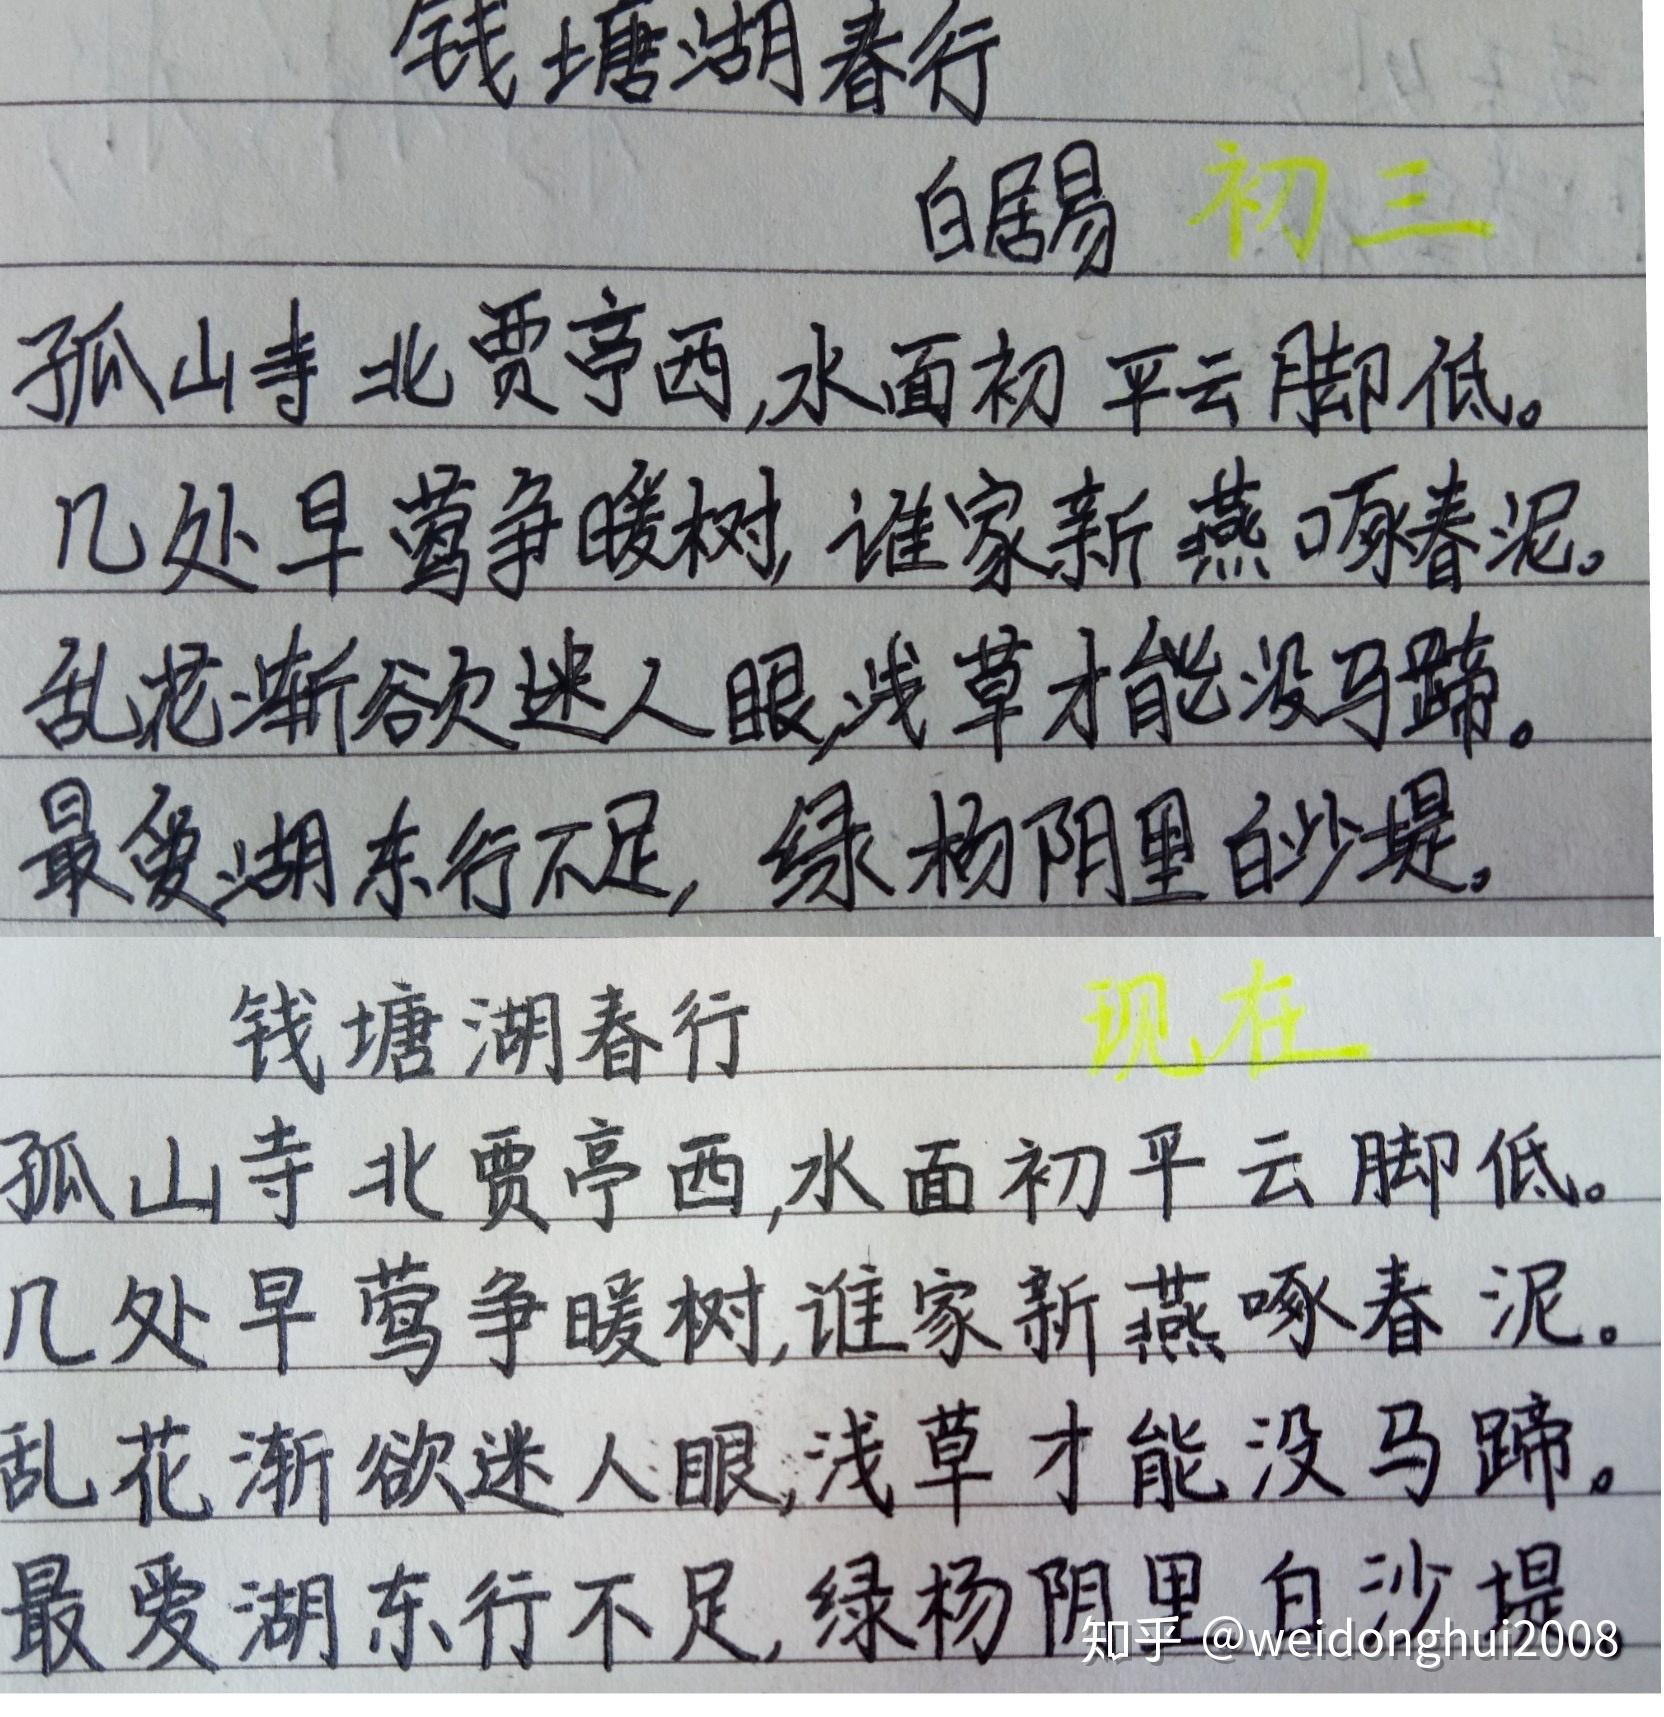 钱塘湖春行
白居易 初三
孤山寺北贾亭西,水面初平云脚低。
几处早莺争暖树,谁家新燕啄春泥。
乱花渐欲迷人眼,浅草才能没马蹄。
最爱湖东行不足,绿杨阴里白沙堤。
钱塘湖春行 现在
孤山寺北贾亭西,水面初平云脚低。
几处早莺争暖树,谁家新燕啄春泥。
乱花渐欲迷人眼,浅草才能没马蹄。
最爱湖东行不足,绿杨阴里白沙堤
知乎 @weidonghui2008